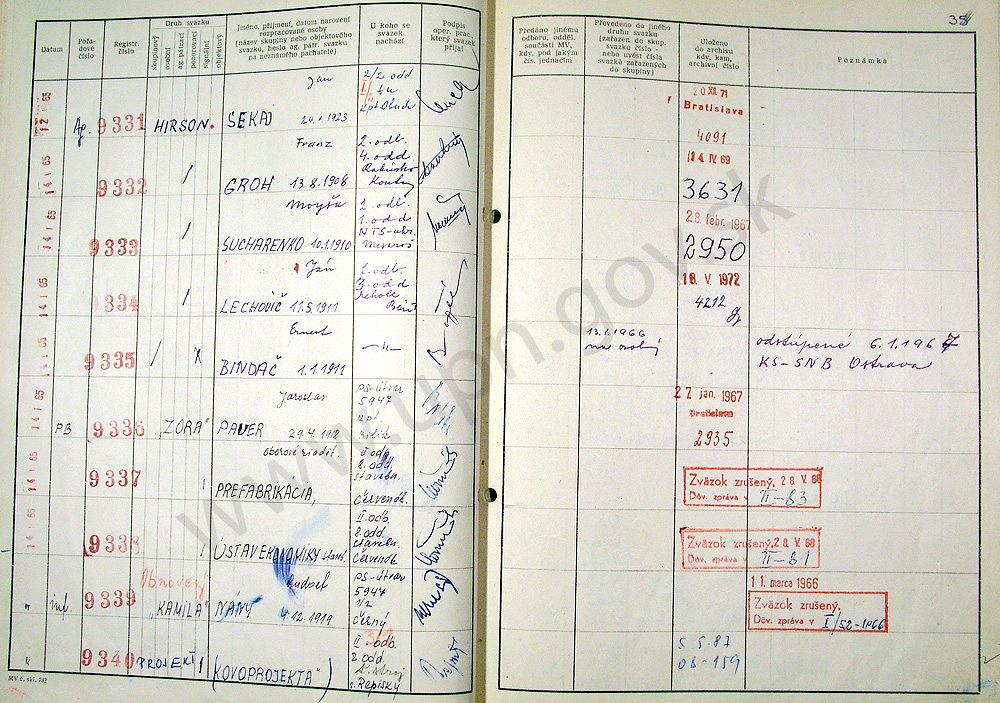 35
Datum
Pořadové číslo
Registr. číslo
Druh svazku
skupinový
osobní
ag. pátrací
pozorovací
signální
objektový
Jméno, příjmení, datum narození
rozpracované osoby
(název skupiny nebo objektového
svazku, heslo ag. pátr. svazku
na neznámého pachatele)
U koho se
svazek
nachází
Podpis
oper. prac.,
který svazek
přijal
Předáno jinému
odboru, odděl.
součásti MV,
kdy, pod jakým
čís. jednacím
Převedeno do jiného
druhu svazku
(zařazen do skup.
svazku číslo -
nebo uvést čísla
svazků zařazených
do skupiny)
Uloženo
do archivu
kdy, kam,
archivní číslo
Poznámka
12 1 65
Ag.
9331
HIRSON
Ján
SEKAJ
2/2 odd
20 XII. 71
Bratislava
4091
14 1 65
9332
/
Franz
GROH 13.8.1908
2. odb.
4. odd
Rakúsko
14 IV. 69
3631
14 1 65
9333
/
SUCHARENKO 10.1.1910
2. odb.
1. odd
Mesaroš
28. febr. 1967
2950
14 1 65
9334
/
Ján
LECHOVIČ 11.5.1911
2. odb.
3. odd
18. V. 1972
4212
14 1 65
9335
/
Ernest
BINDAČ 1.1.1911
-"-
13.1.1966
na osobný
odstúpené 6.1.1967
KS-SNB Ostrava
14 1 65
PB
9336
"ZORA"
Jaroslav
PAVER 29.4.1918
PS-útvar
5947
Bilík
27. jan. 1967
Bratislava
2935
14 1 65
9337
/
oborové riadit.
PREFABRIKÁCIA,
II odb.
8. odd.
stavebn.
Červenák
Zväzok zrušený, 28. V. 68
Dôv. zpráva v II-83
14 1 65
9338
/
ÚSTAV EKONOMIKY
II. odb.
8. odd.
Červenák
Zväzok zrušený, 28. V. 68
Dôv. zpráva v II-81
"
9339
Obnovený
"KAMILA"
Rudolf
NANY 4.12.1919
PS-útvar
5947
1/2
Černý
11. marca 1966
Zväzok zrušený,
Dôv. zpráva v I/52-1966
"
9340
PROJEKT
/
(KOVOPROJEKTA")
II. odb.
8 odd
Repiský
5.5.87
08-159
MV č. skl. 732
www.upn.gov.sk